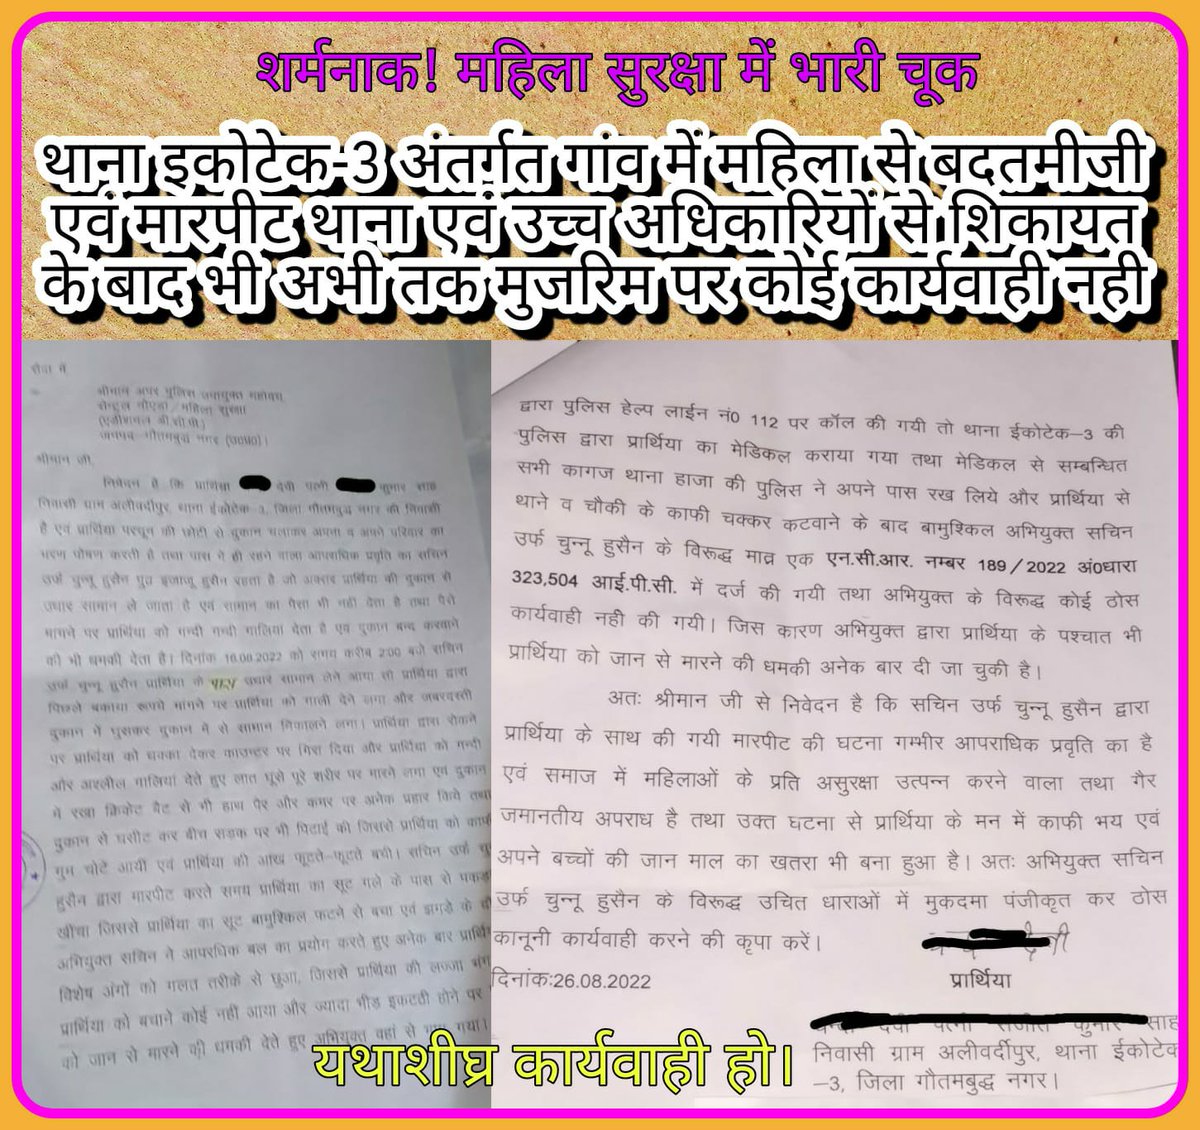 शर्मनाक! महिला सुरक्षा में भारी चूक
थाना इकोटेक-3 अंतर्गत गांव में महिला से बदतमीजी
एवं मारपीट थाना एवं उच्च अधिकारियों से शिकायत
के बाद भी अभी तक मुजरिम पर कोई कार्यवाही नही
सेवा में
श्रीमान अपर पुलिस उपायुक्त महोदय
सेन्ट्रल नोएडा/महिला सुरक्षा
(एडीशनल डी०सी०पी०)
जनपद-गौतमबुद्ध नगर (उ०प्र०)।
श्रीमान जी,
निवेदन है कि प्रार्थिया देवी पत्नी कुमार साह
निवासी ग्राम अलीवर्दीपुर, थाना ईकोटेक-3, जिला गौतमबुद्ध नगर की निवासी
है एवं प्रार्थिया परचून की छोटी से दुकान चलाकर अपना व अपने परिवार का
भरण पोषण करती है तथा पास मे ही रहने वाला आपराधिक प्रवृति का सचिन
उर्फ चुन्नू हुसैन पुत्र हुसैन रहता है जो अक्सर प्रार्थिया की दुकान से
उधार सामान ले जाता है एवं सामान का पैसा भी नही देता है तथा पैसे
मांगने पर प्रार्थिया को गन्दी गन्दी गालियां देता है एवं दुकान बन्द करवाने
की भी धमकी देता है। दिनांक 16.08.2022 को समय करीब 2:00 बजे सचिन
उर्फ चुन्नू हुसैन प्रार्थिया के पास उधार सामान लेने आया तो प्रार्थिया द्वारा
पिछले बकाया रूपये मांगने पर प्रार्थिया को गाली देने लगा और जबरदस्ती
दुकान में घुसकर दुकान में से सामान निकालने लगा। प्रार्थिया द्वारा रोकने
पर प्रार्थिया को धक्का देकर काउन्टर पर गिरा दिया और प्रार्थिया को गन्दी
और अश्लील गालियां देते हुए लात घूसे पूरे शरीर पर मारने लगा एवं दुकान
में रखा क्रिकेट बैट से भी हाथ पैर और कमर पर अनेक प्रहार किये तथा
दुकान से घसीट कर बीच सडक पर भी पिटाई की जिससे प्रार्थिया को काफी
गुम चोटे आयी एवं प्रार्थिया की आंख फूटते-फूटते बची। सचिन उर्फ
हुसैन द्वारा मारपीट करते समय प्रार्थिया का सूट गले के पास से पकड
खींचा जिससे प्रार्थिया का सूट बामुश्किल फटने से बचा एवं झगडे के
अभियुक्त सचिन ने आपरधिक बल का प्रयोग करते हुए अनेक बार
विशेष अंगों को गलत तरीके से छुआ, जिससे प्रार्थिया की लज्जा भंग
प्रार्थिया को बचाने कोई नहीं आया और ज्यादा भीड इकटठी होने पर
को जान से मारने की धमकी देते हुए अभियुक्त वहां से गया।
द्वारा पुलिस हेल्प लाईन नं0 112 पर कॉल की गयी तो थाना ईकोटेक-3 की
पुलिस द्वारा प्रार्थिया का मेडिकल कराया गया तथा मेडिकल से सम्बन्धित
सभी कागज थाना हाजा की पुलिस ने अपने पास रख लिये और प्रार्थिया से
थाने व चौकी के काफी चक्कर कटवाने के बाद बामुश्किल अभियुक्त सचिन
उर्फ चुन्नू हुसैन के विरूद्ध मात्र एक एन.सी.आर. नम्बर 189/2022 अं0धारा
323,504 आई.पी.सी. में दर्ज की गयी तथा अभियुक्त के विरूद्ध कोई ठोस
कार्यवाही नही की गयी। जिस कारण अभियुक्त द्वारा प्रार्थिया के पश्चात भी
प्रार्थिया को जान से मारने की धमकी अनेक बार दी जा चुकी है।
अतः श्रीमान जी से निवेदन है कि सचिन उर्फ चुन्नू हुसैन द्वारा
प्रार्थिया के साथ की गयी मारपीट की घटना गम्भीर आपराधिक प्रवृति का है
एवं समाज में महिलाओं के प्रति असुरक्षा उत्पन्न करने वाला तथा गैर
जमानतीय अपराध है तथा उक्त घटना से प्रार्थिया के मन में काफी भय एवं
अपने बच्चों की जान माल का खतरा भी बना हुआ है। अतः अभियुक्त सचिन
उर्फ चुन्नू हुसैन के विरूद्ध उचित धाराओं में मुकदमा पंजीकृत कर ठोस
कानूनी कार्यवाही करने की कृपा करें।
दिनांक:26.08.2022
प्रार्थिया
देवी पत्नी कुमार साह
निवासी ग्राम अलीवर्दीपुर, थाना ईकोटेक
-3, जिला गौतमबुद्ध नगर।
यथाशीघ्र कार्यवाही हो।